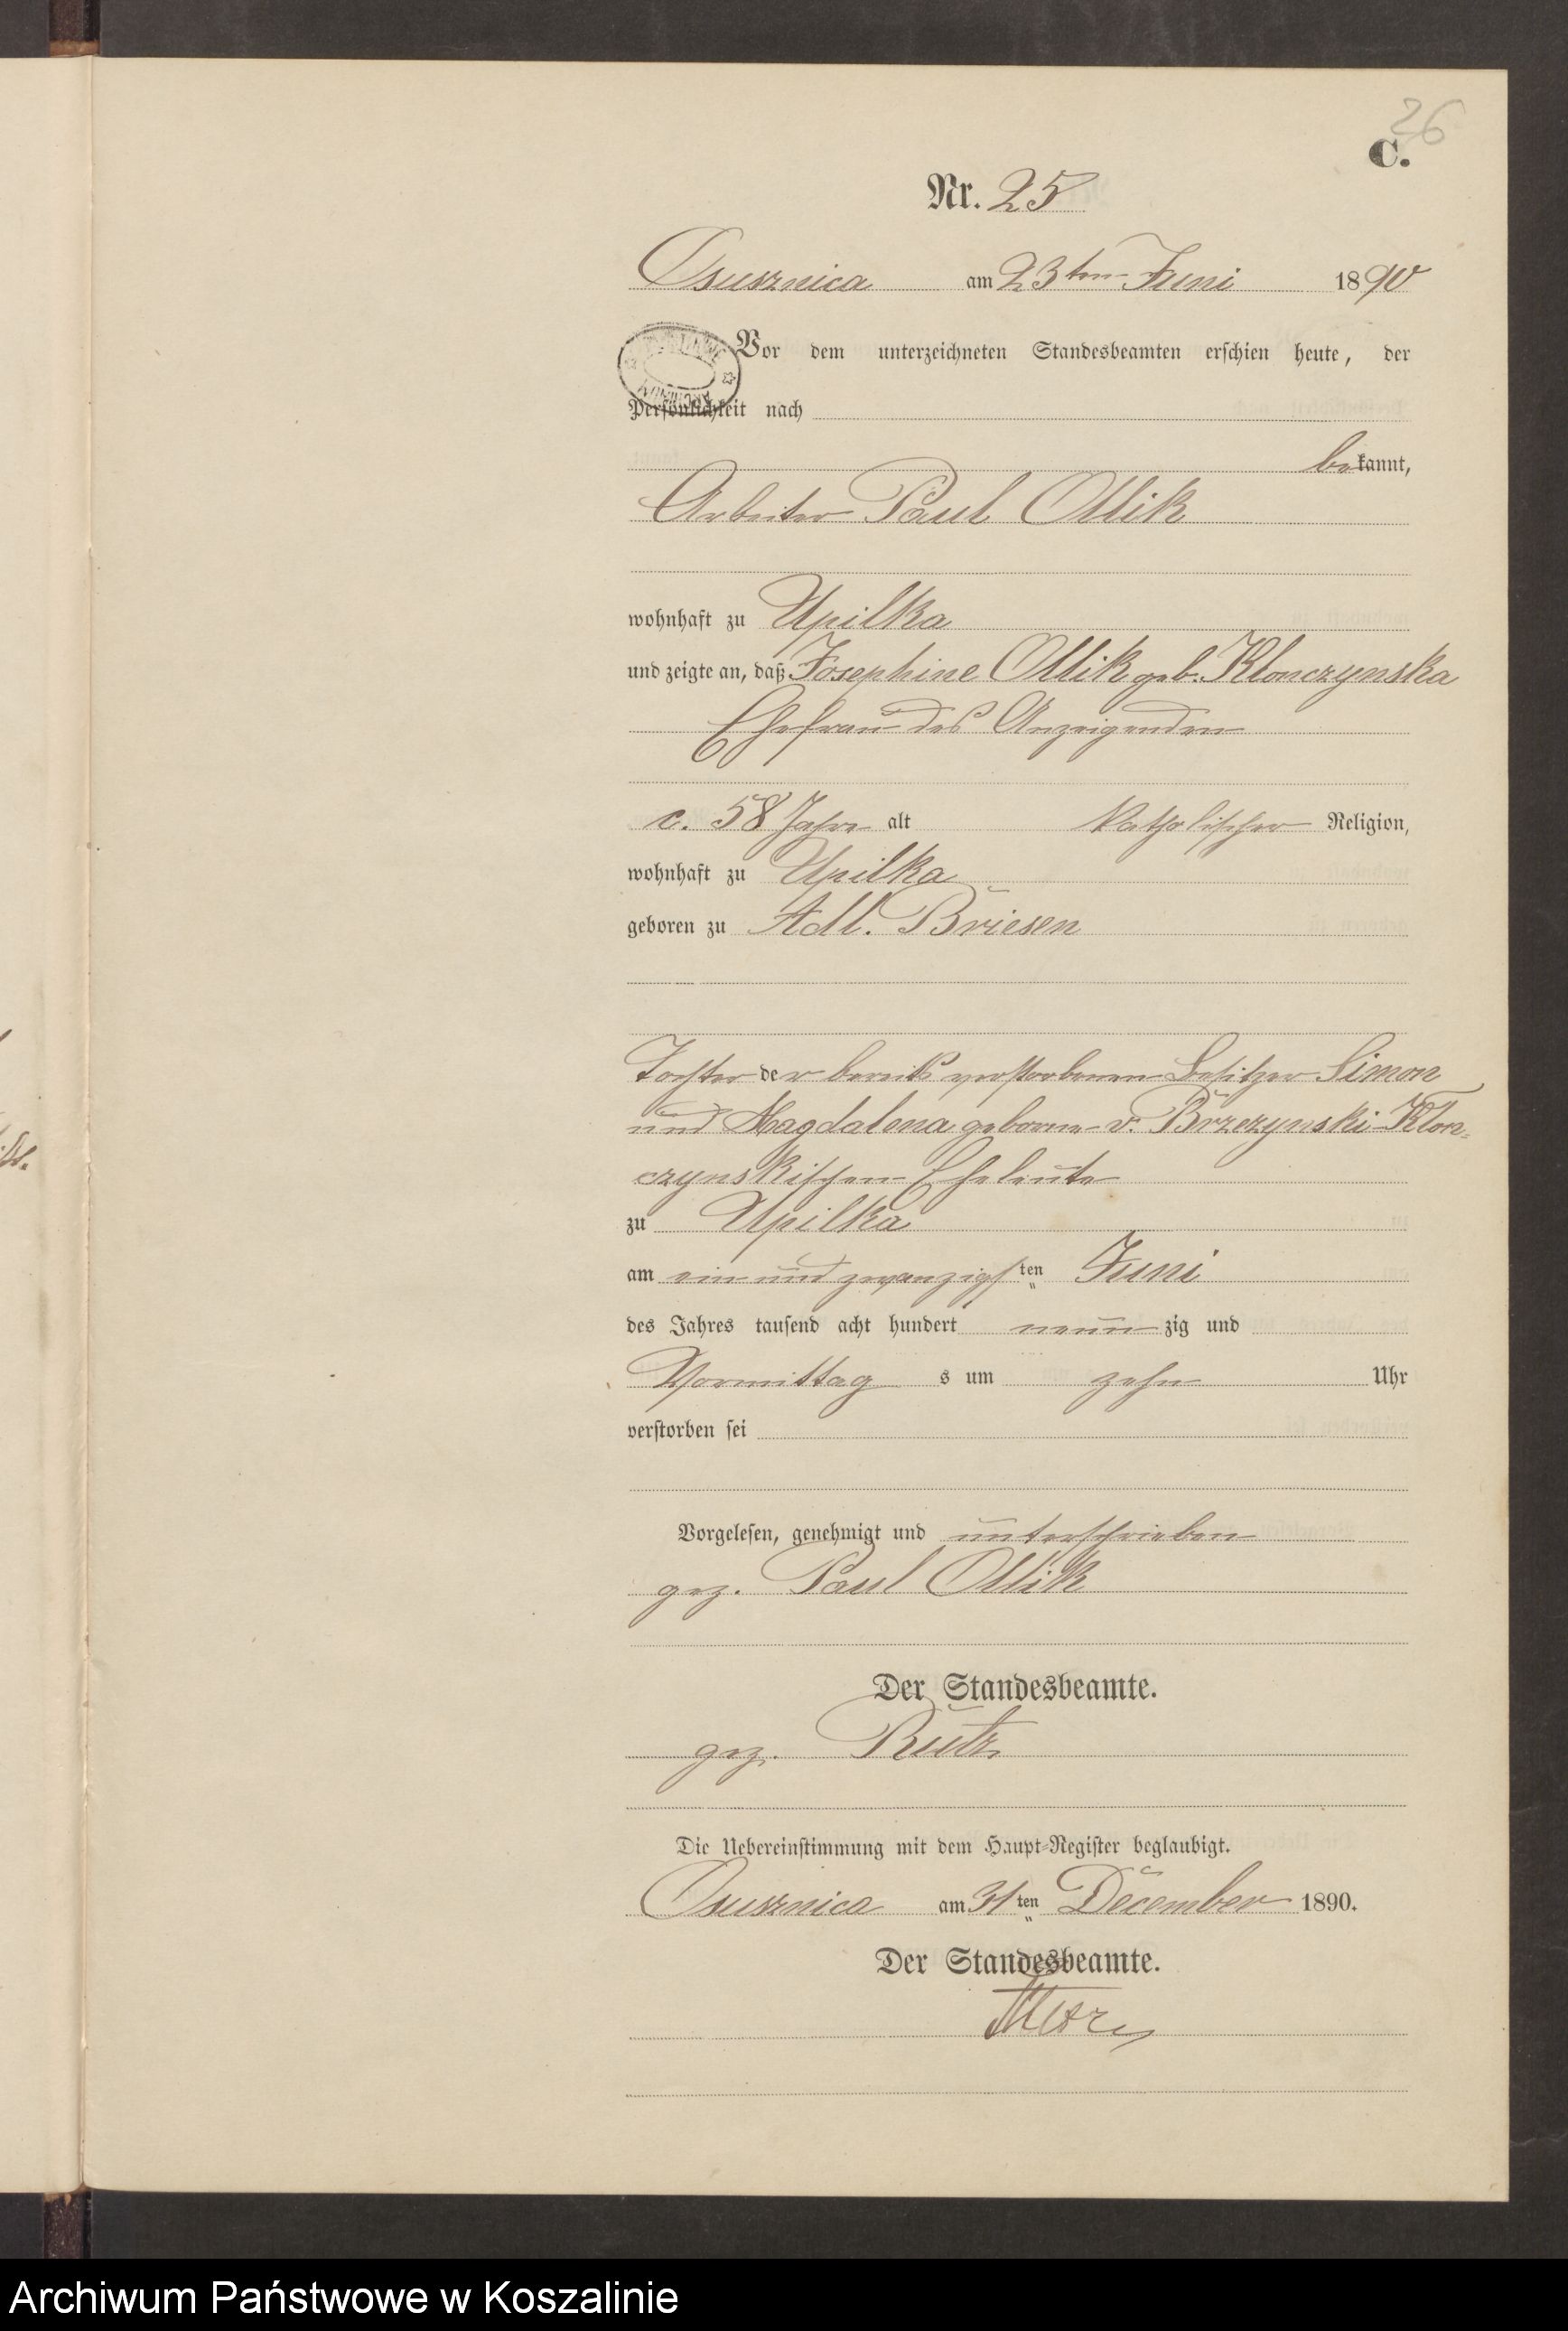 26
C.
Nr. 25
Osusznica am 23ten Juni 1890
Vor dem unterzeichneten Standesbeamten erschien heute, der
Persönlichkeit nach
bekannt,
Arbeiter Paul Ollik
wohnhaft zu Upilka
und zeigte an, daß Josephine Ollik geb. Klonczynska
Ehefrau des Anzeigenden
c. 58 Jahre alt katholischer Religion,
wohnhaft zu Upilka
geboren zu Adl. Briesen
Tochter der bereits verstorbenen Besitzer Simon
und Magdalena geborene v. Brzezynski-Klon-
czynskischen Eheleute
zu Upilka
am ein und zwanzigsten Juni
des Jahres tausend acht hundert neunzig und
Vormittags um zehn Uhr
verstorben sei
Vorgelesen, genehmigt und unterschrieben
gez. Paul Ollik
Der Standesbeamte.
gez. Rutz
Die Uebereinstimmung mit dem Haupt-Register beglaubigt.
Osusznica am 31ten December 1890.
Der Standesbeamte.
Archiwum Państwowe w Koszalinie